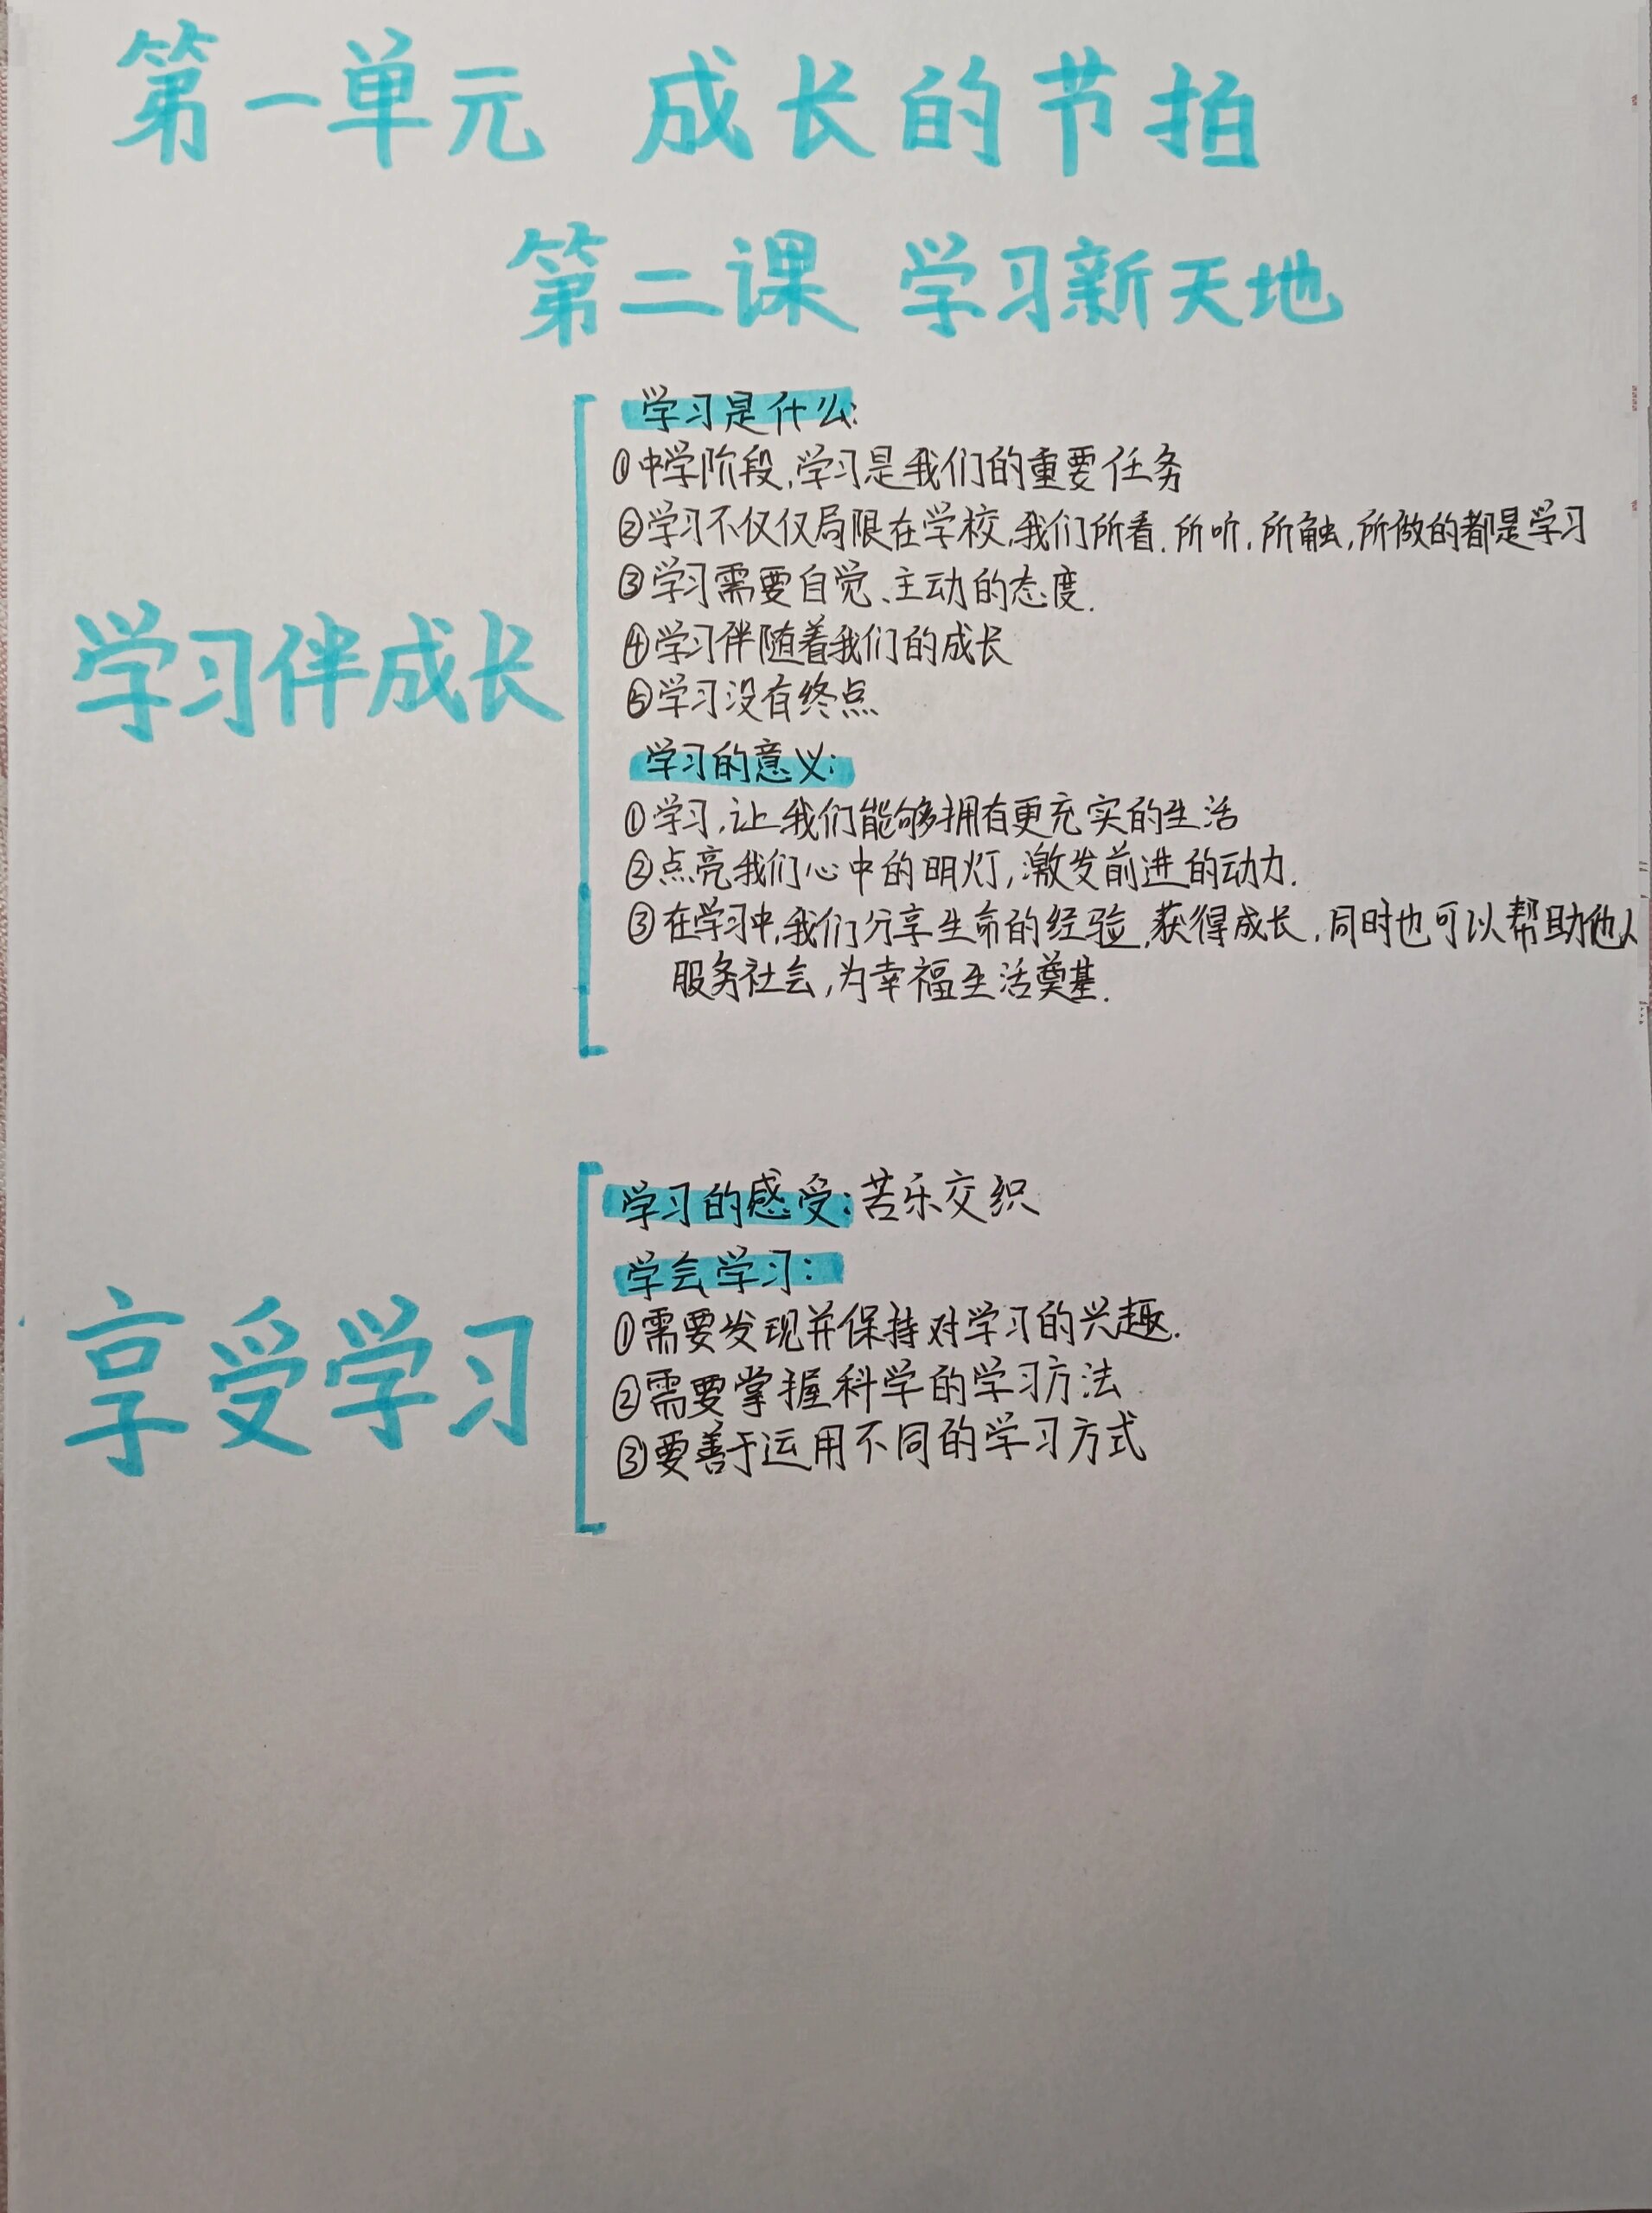 第一单元 成长的节拍
第二课 学习新天地
学习伴成长
学习是什么:
①中学阶段,学习是我们的重要任务
②学习不仅仅局限在学校,我们所看.所听.所触,所做的都是学习
③学习需要自觉、主动的态度.
④学习伴随着我们的成长
⑤学习没有终点
学习的意义:
①学习,让我们能够拥有更充实的生活
②点亮我们心中的明灯,激发前进的动力.
③在学习中,我们分享生命的经验,获得成长,同时也可以帮助他人
服务社会,为幸福生活奠基.
享受学习
学习的感受:苦乐交织
学会学习:
①需要发现并保持对学习的兴趣.
②需要掌握科学的学习方法
③要善于运用不同的学习方式